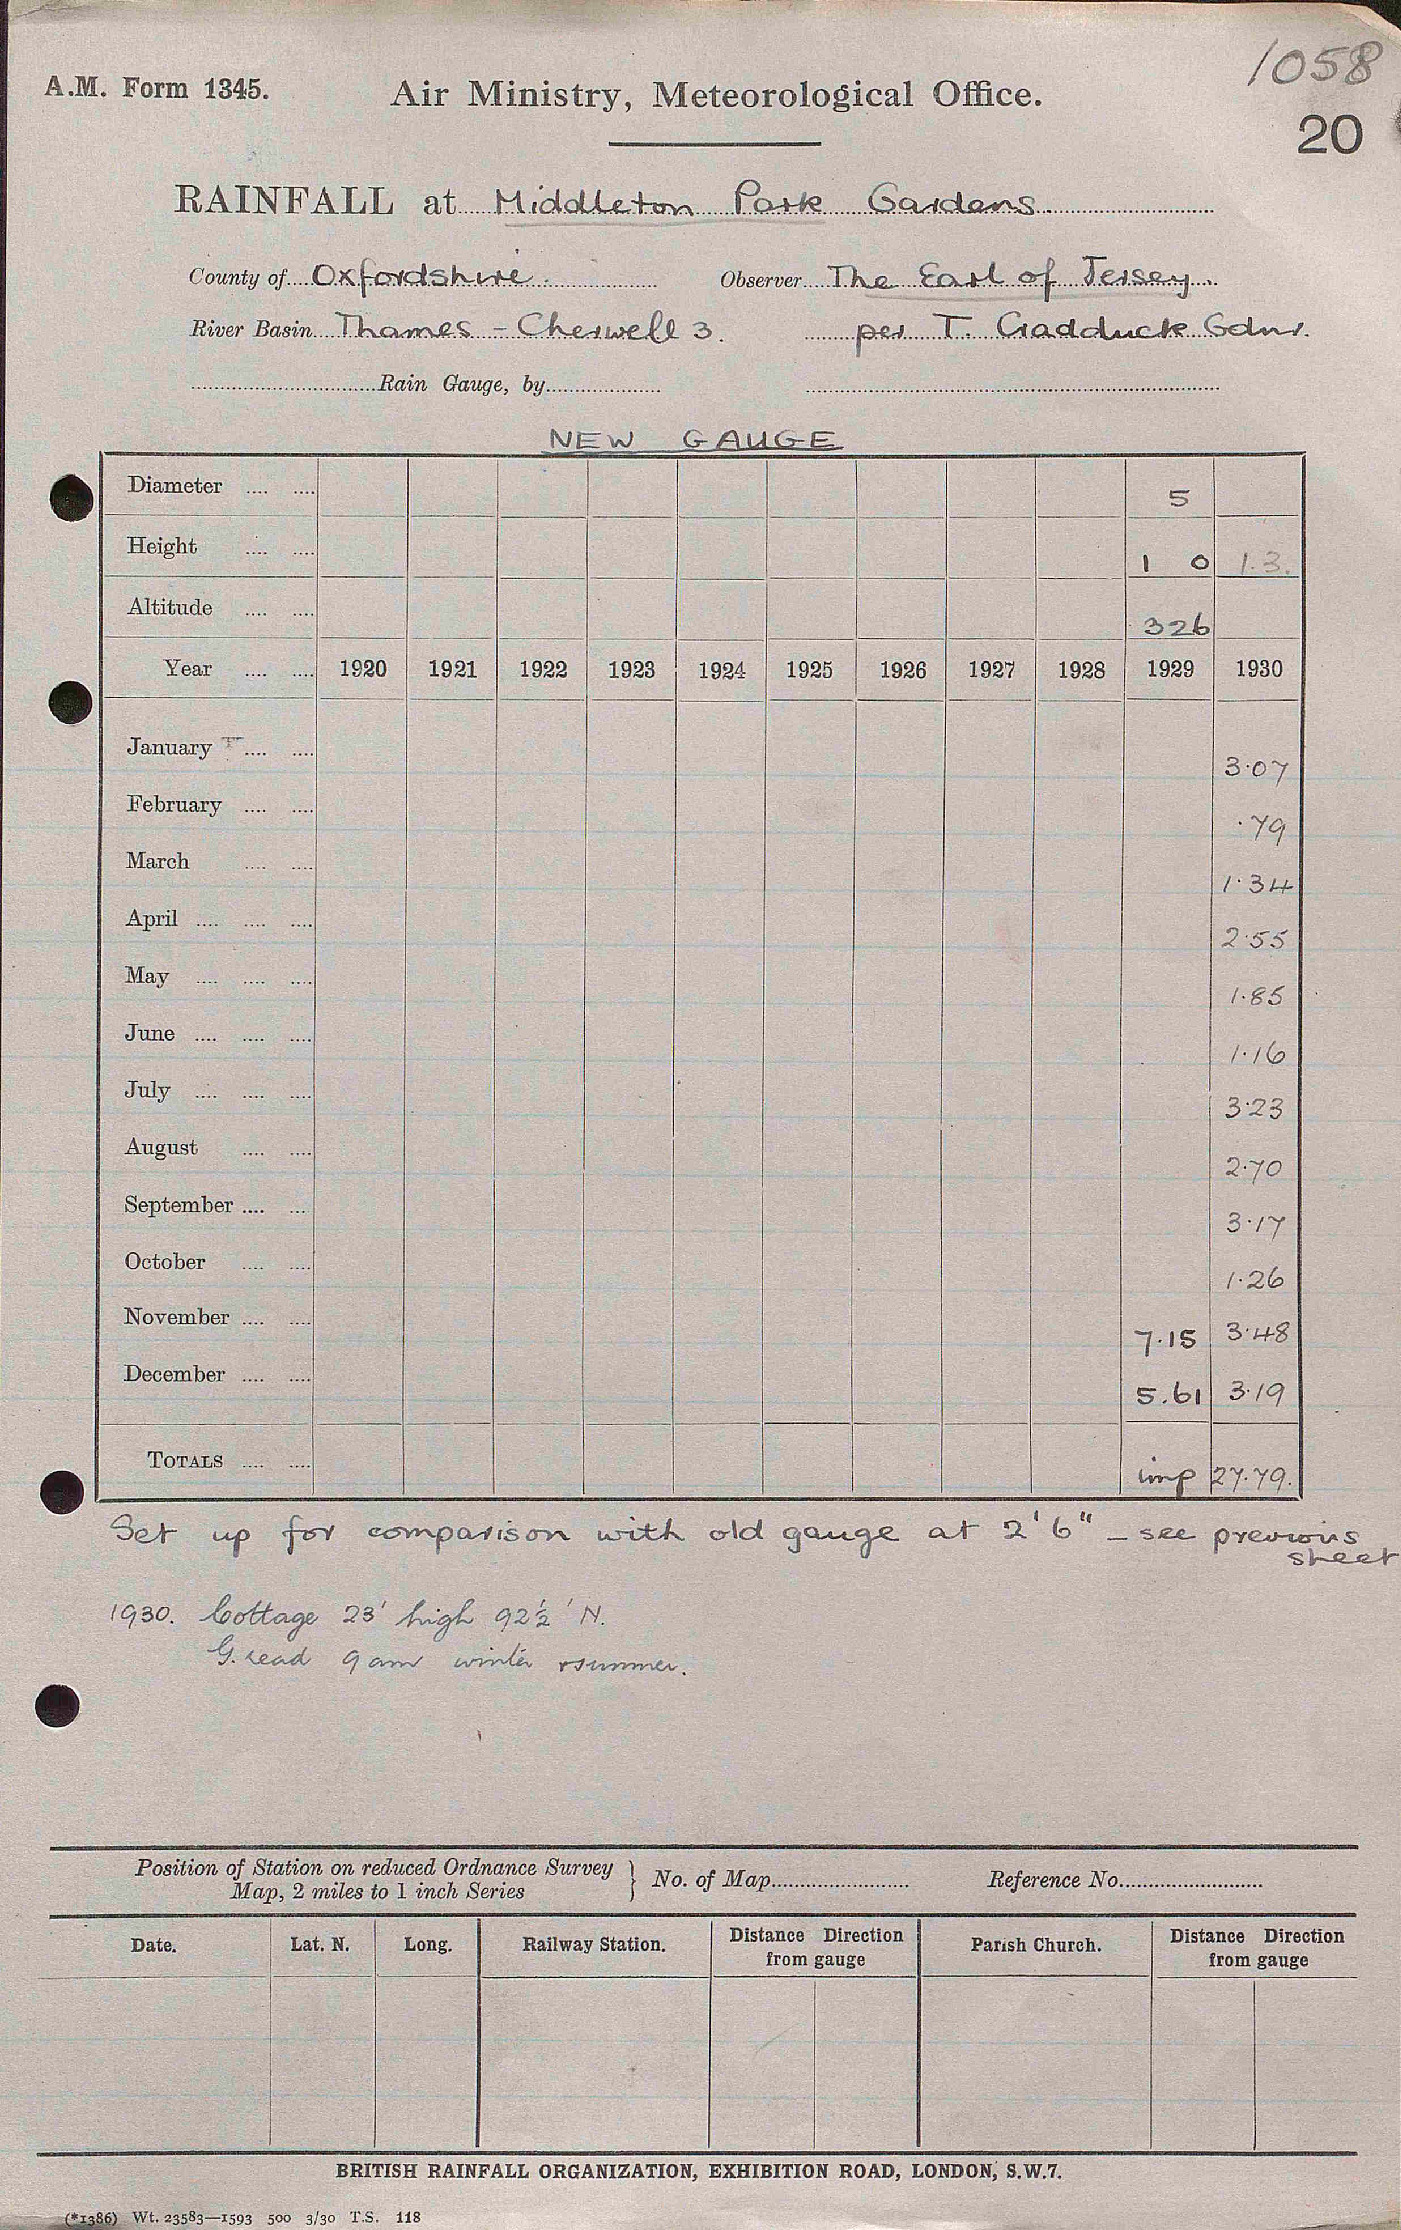 1058
A.M. Form 1345.
Air Ministry, Meteorological Office.
20
RAINFALL at Middleton Park Gardens
County of Oxfordshire. Observer The Earl of Jersey
River Basin Thames - Cherwell 3. per T. Gadduck Gdnr.
Rain Gauge, by
NEW GAUGE
Diameter 5
Height 1 0 1.3.
Altitude 326
Year 1920 1921 1922 1923 1924 1925 1926 1927 1928 1929 1930
January 3·07
February ·79
March 1·34
April 2·55
May 1·85
June 1·16
July 3·23
August 2·70
September 3·17
October 1·26
November 7·15 3·48
December 5.61 3·19
TOTALS imp 27.79.
Set up for comparison with old gauge at 2' 6" - see previous
sheet
1930. Cottage 23' high 92½' N.
G. read 9 am winter & summer.
Position of Station on reduced Ordnance Survey
Map, 2 miles to 1 inch Series } No. of Map Reference No.
Date. Lat. N. Long. Railway Station. Distance Direction from gauge Parish Church. Distance Direction from gauge
BRITISH RAINFALL ORGANIZATION, EXHIBITION ROAD, LONDON, S.W.7.
(*1386) Wt. 23583—1593 500 3/30 T.S. 118